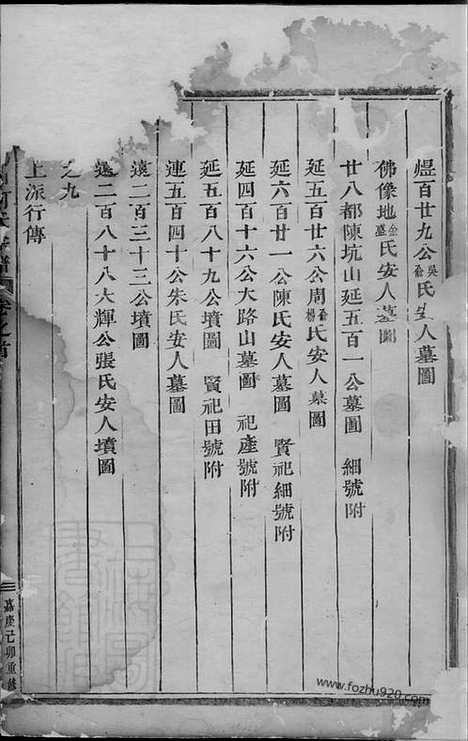 煜百廿九公吳氏安人墓圖
佛像地金氏安人墓圖
廿八都陳坑山延五百一公墓圖 細號附
延五百廿六公周氏安人墓圖
延六百廿一公陳氏安人墓圖 賢祀細號附
延四百十六公大路山墓圖 祀產號附
延五百八十九公墳圖 賢祀田號附
連五百四十公朱氏安人墓圖
遠二百三十三公墳圖
遠二百八十八大輝公張氏安人墳圖
之九
上派行傳
卷之首
嘉慶己卯重修
www.fozhu920.com